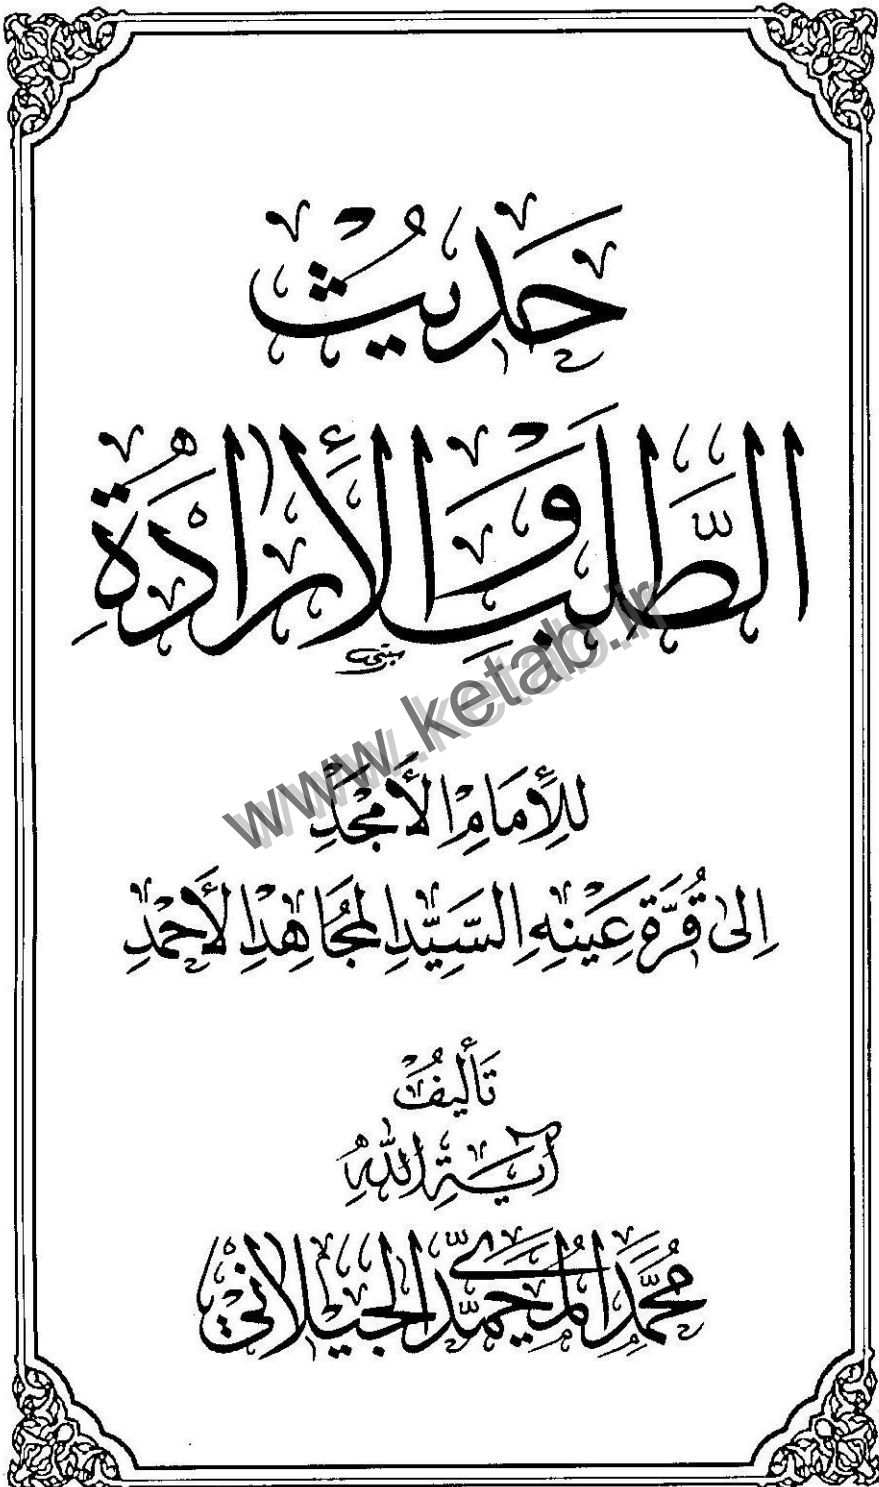 حَديثُ
الطَّلَبِ وَ الْأِرادَةِ
مبتنی
www.ketab.ir
لِلإِمَامِ الأَمْجَدِ
إِلى قُرَّةِ عَينِهِ السَّيِّدِ المجُاهِدِ الأَحمَدِ
تَأليفُ
آيَةِ اللهِ
مُحَمَّد المُحَمَّدي الجيلاني